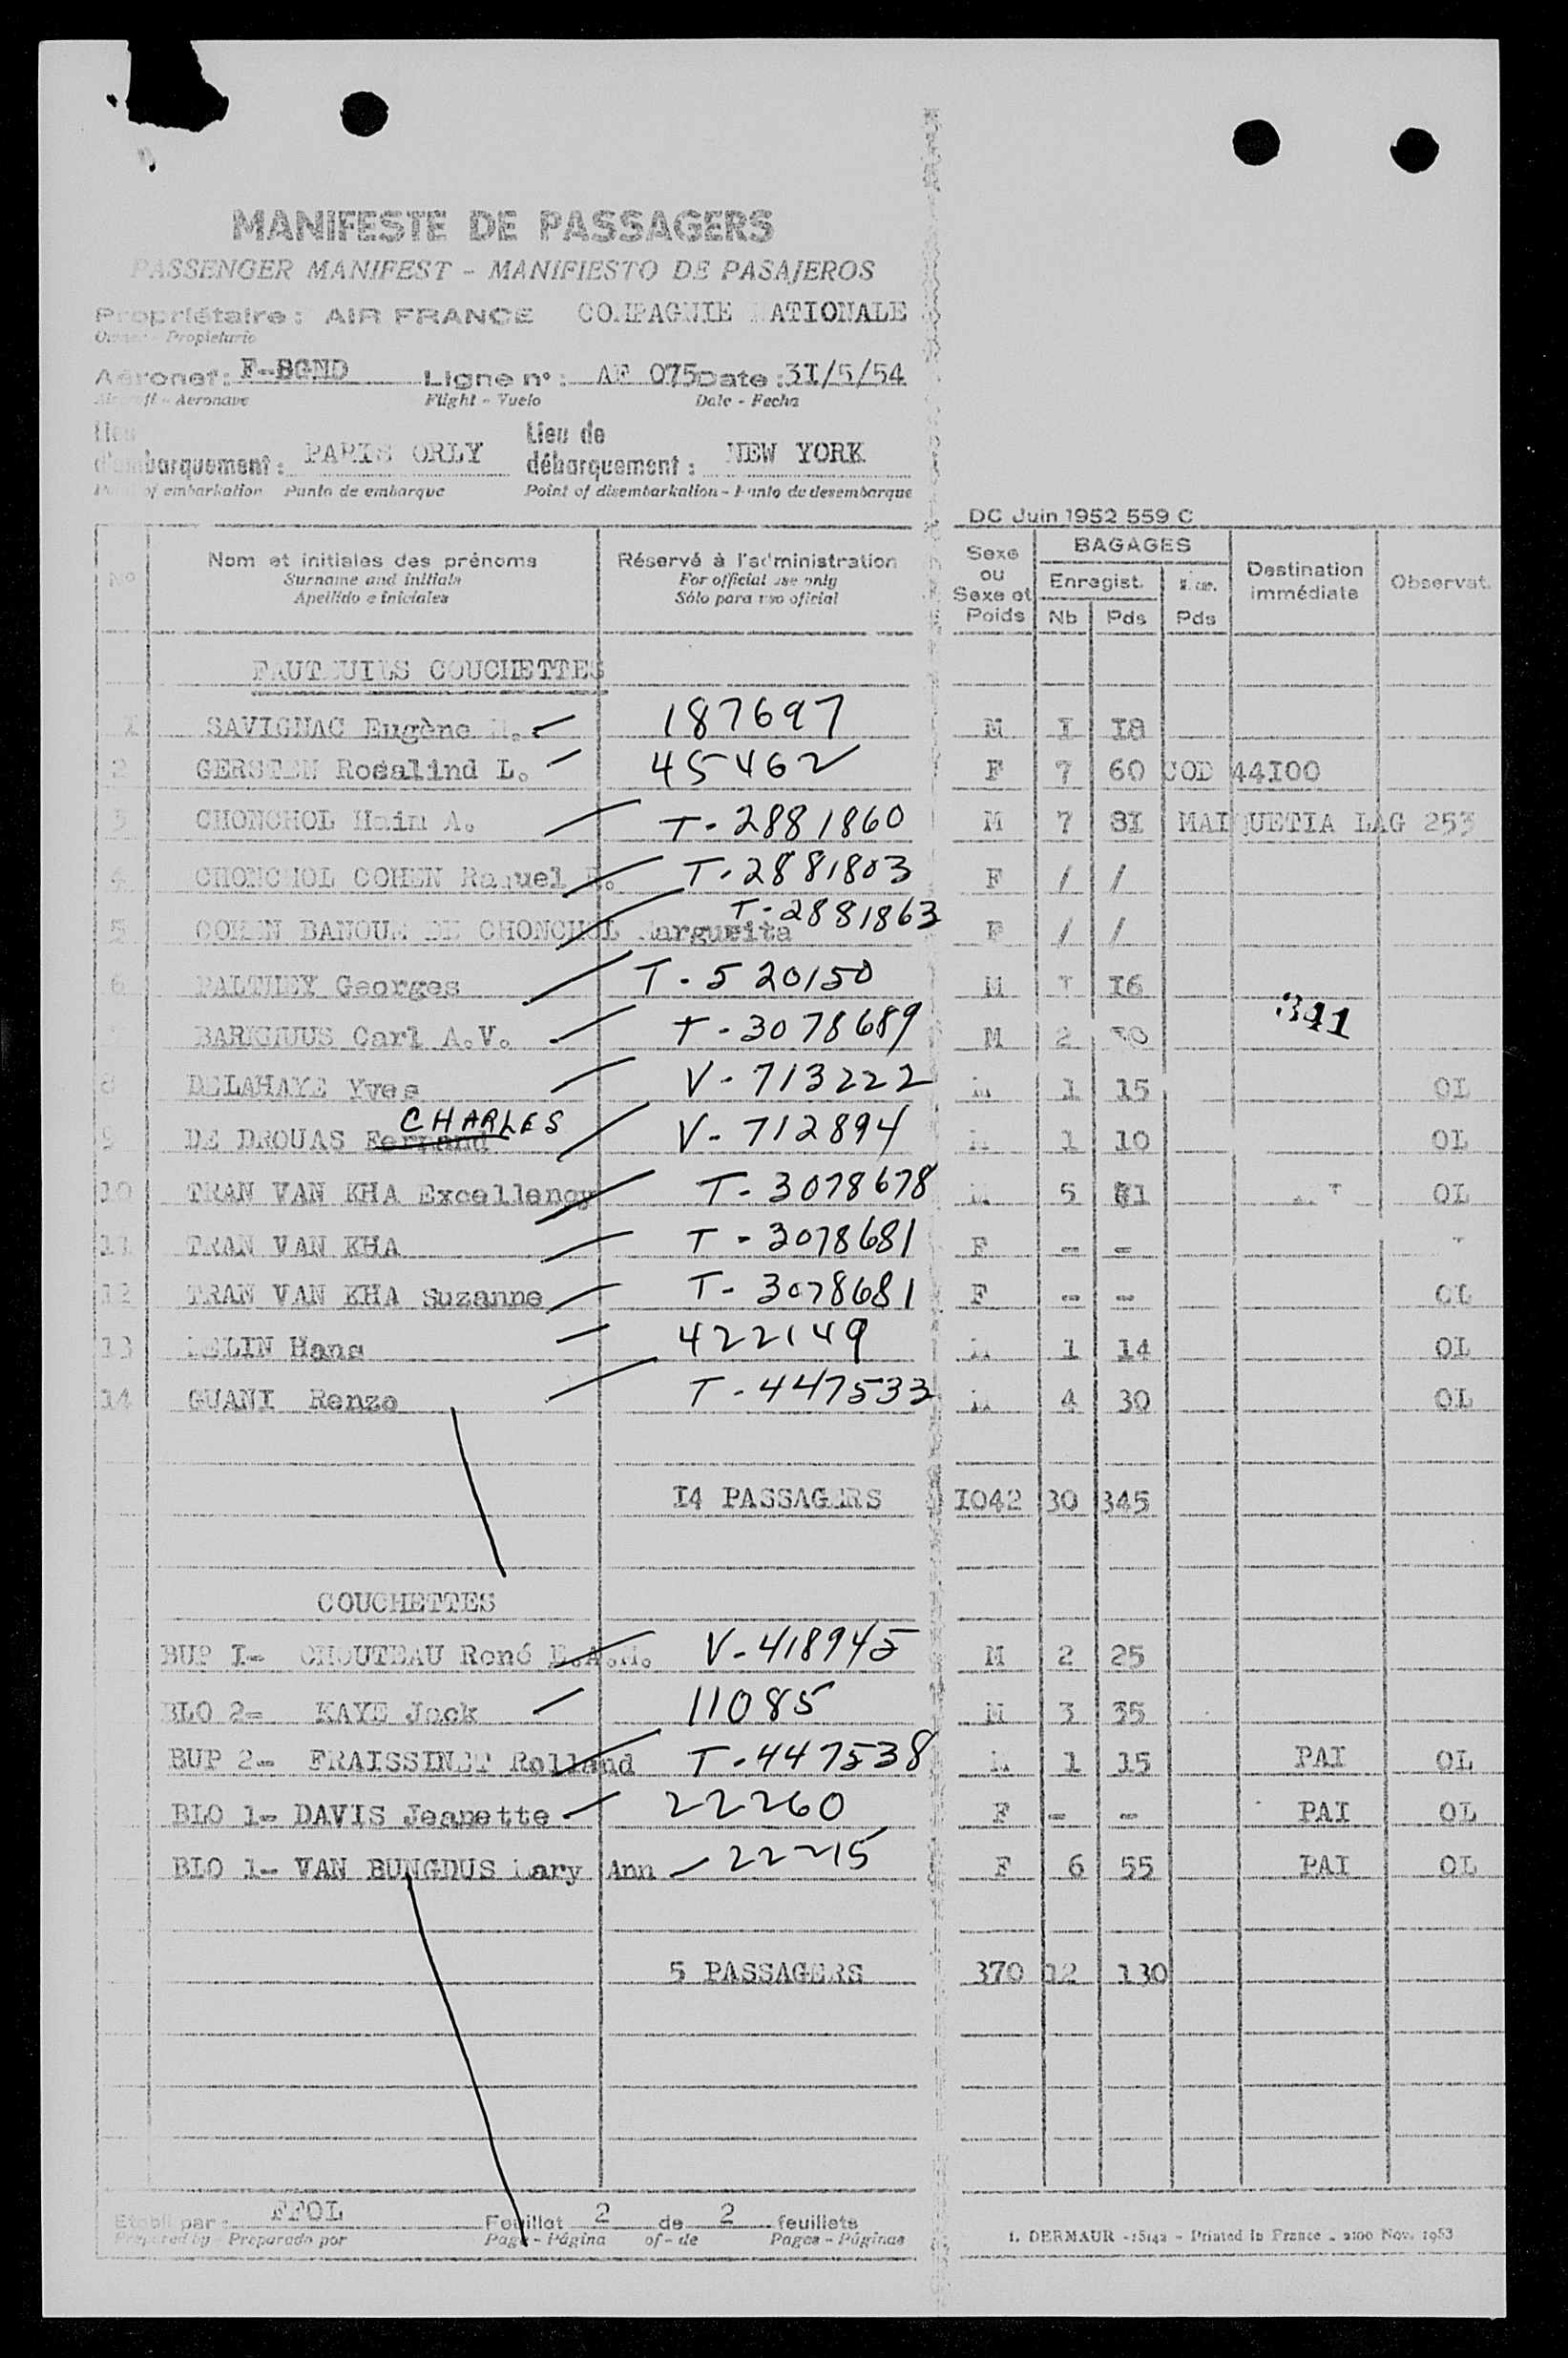 MANIFESTE DE PASSAGERS
PASSENGER MANIFEST - MANIFIESTO DE PASAJEROS
Propriétaire : AIR FRANCE COMPAGNIE NATIONALE
Owner - Propietario
Aéronef : F-BGND Ligne n° : AF 075 Date : 3I/5/54
Aircraft - Aeronave Flight - Vuelo Date - Fecha
Lieu d'embarquement : PARIS ORLY Lieu de débarquement : NEW YORK
Point of embarkation Punto de embarque Point of disembarkation - Punto de desembarque
DC Juin 1952 559 C
N° Nom et initiales des prénoms Réservé à l'administration Sexe ou Sexe et Poids BAGAGES Destination immédiate Observat.
Surname and initials For official use only Enregist.
Apellido e iniciales Sólo para uso oficial Nb Pds Pds
FAUTEUILS COUCHETTES
1 SAVIGNAC Eugène 187697 M I I8
2 GERSTEN Rosalind L. 45462 F 7 60 COD 44I00
3 CHONCHOL A. T-2881860 M 7 8I MAIQUETIA LAG 253
4 CHONCHOL COHEN T-2881803 F / /
5 COHEN DE CHONCHOL T-2881863 F / /
6 Georges T-520150 M I I6
341
Carl A.V. T-3078689 M 2
8 DELAHAYE Yves V-713222 M 1 15 OL
9 DE DROUAS Fernand CHARLES V-712894 M 1 10 OL
10 TRAN VAN KHA Excellency T-3078678 M 5 OL
11 TRAN VAN KHA T-3078681 F - -
12 TRAN VAN KHA Suzanne T-3078681 F - - OL
13 Hans 422149 M 1 14 OL
14 GUANI Renzo T-447533 M 4 30 OL
I4 PASSAGERS I042 30 345
COUCHETTES
BUP I- CHOUTEAU René V-418945 M 2 25
BLO 2- KAYE Jack 11085 M 3 35
BUP 2- FRAISSINET Rolland T-447538 M 1 15 PAI OL
BLO 1- DAVIS Jeanette 22260 F - - PAI OL
BLO 1- VAN Mary Ann 22215 F 6 55 PAI OL
5 PASSAGERS 370 12 130
Etabli par : FFOL Feuillet 2 de 2 feuillets
Prepared by - Preparado por Page - Página of - de Pages - Páginas
I. DERMAUR - 15142 - Printed in France - 2100 Nov. 1953